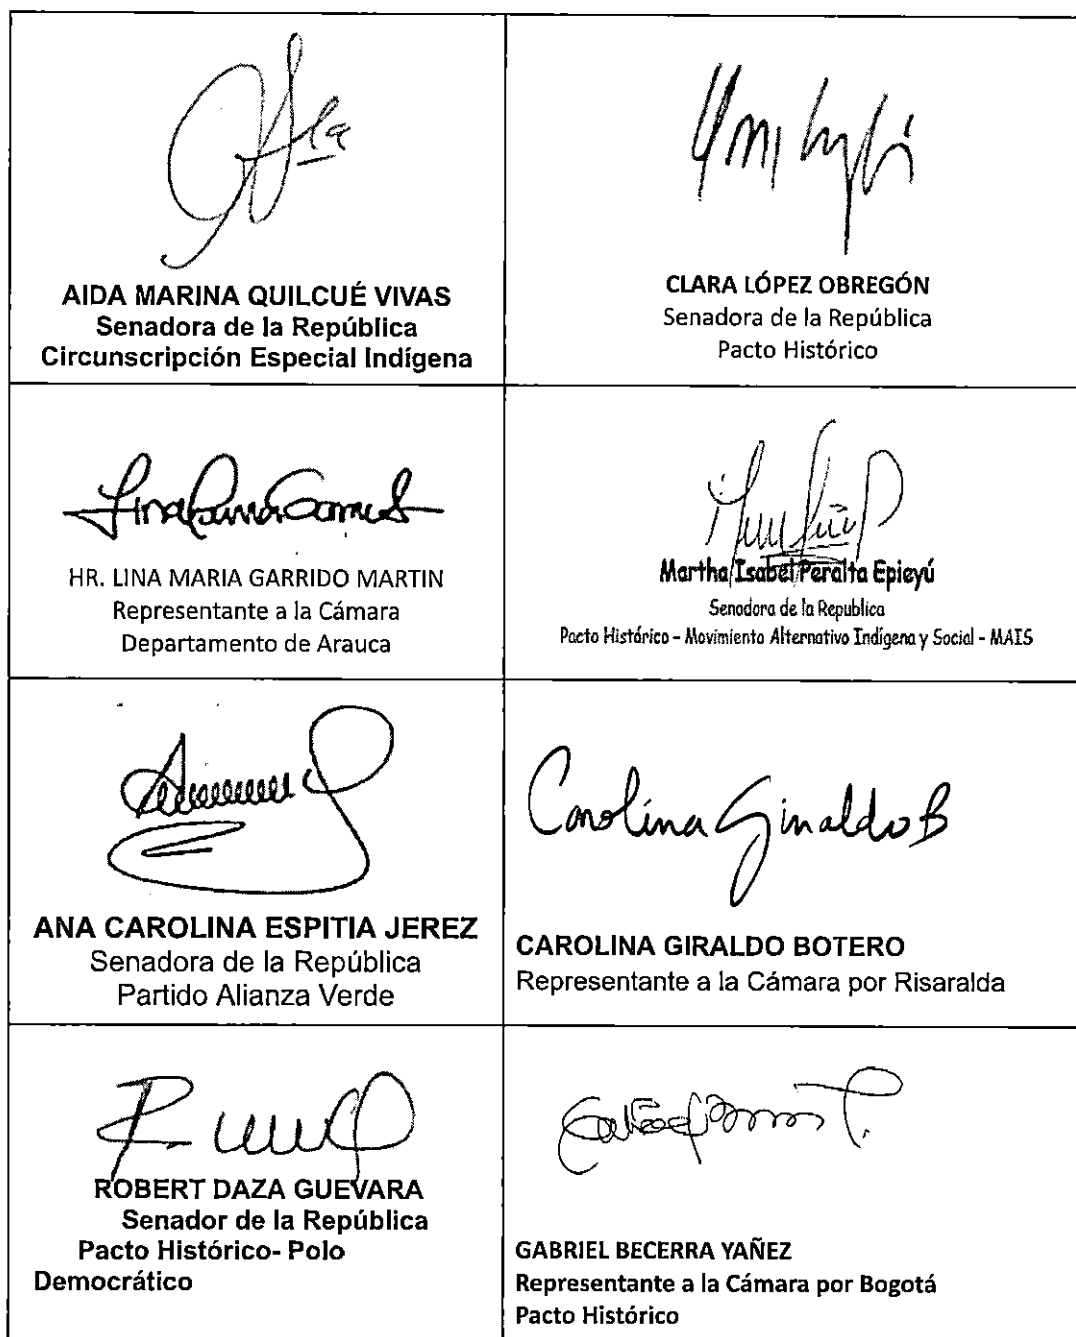 AIDA MARINA QUILCUÉ VIVAS
Senadora de la República
Circunscripción Especial Indígena
CLARA LÓPEZ OBREGÓN
Senadora de la República
Pacto Histórico
HR. LINA MARIA GARRIDO MARTIN
Representante a la Cámara
Departamento de Arauca
Martha Isabel Peralta Epieyú
Senadora de la Republica
Pacto Histórico - Movimiento Alternativo Indígena y Social - MAIS
ANA CAROLINA ESPITIA JEREZ
Senadora de la República
Partido Alianza Verde
Carolina Giraldo B
CAROLINA GIRALDO BOTERO
Representante a la Cámara por Risaralda
ROBERT DAZA GUEVARA
Senador de la República
Pacto Histórico- Polo
Democrático
GABRIEL BECERRA YAÑEZ
Representante a la Cámara por Bogotá
Pacto Histórico